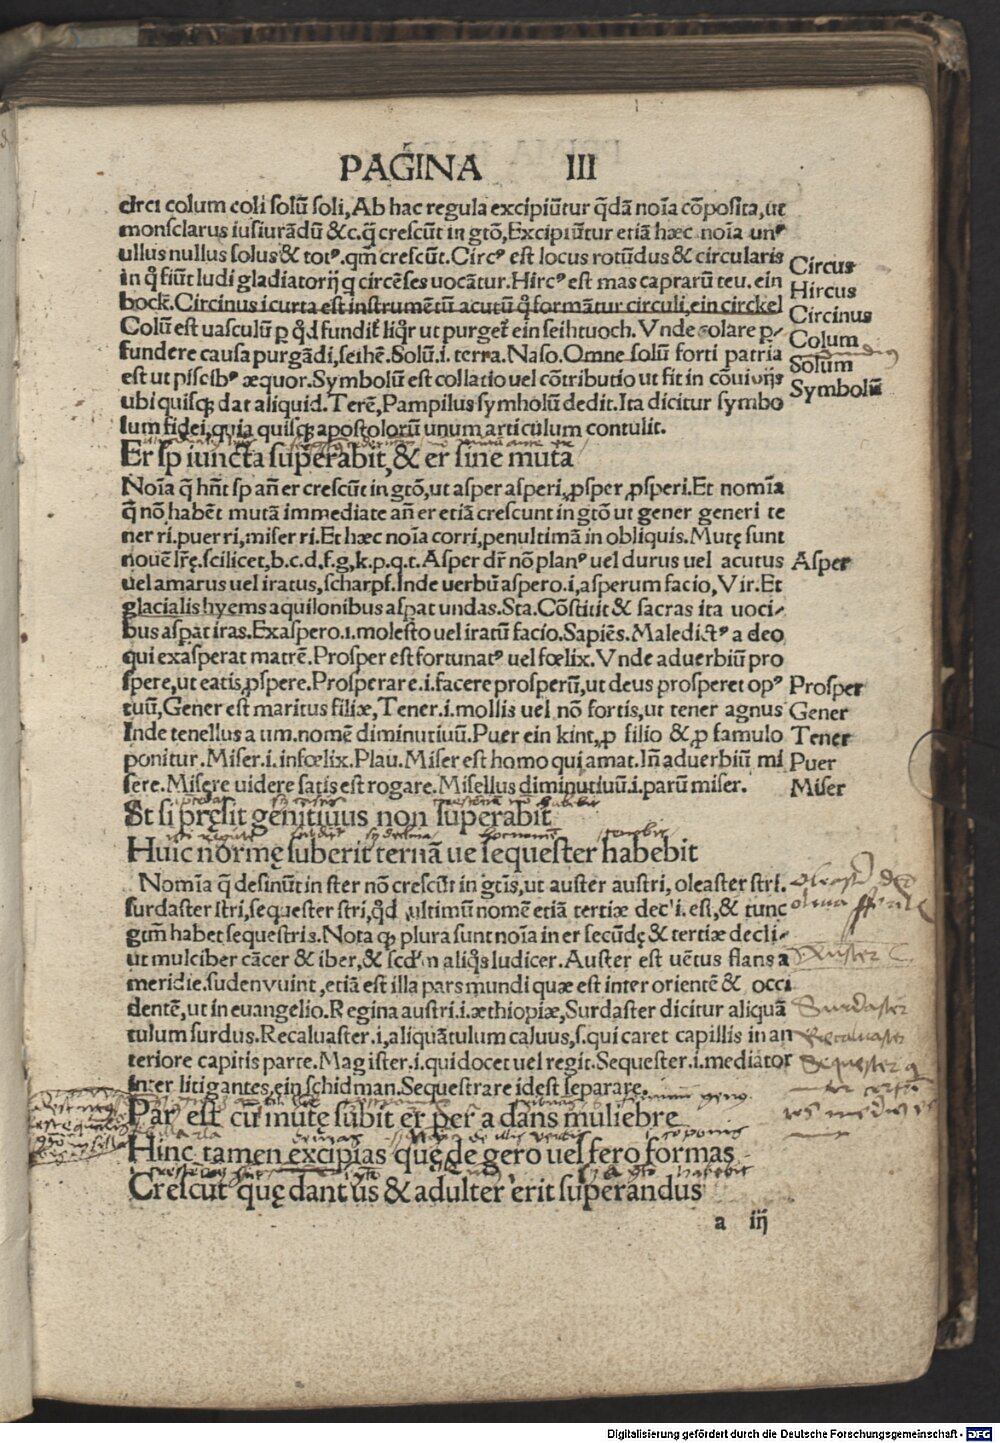 PAGINA III
circi colum coli solū soli, Ab hac regula excipiūtur q̄dā noīa cōposita, ut
monsclarus iusiurādū &c. q̄ crescūt in gtō, Excipiūtur etiā hæc noīa unꝰ
ullus nullus solus & totꝰ. qm̄ crescūt. Circꝰ est locus rotūdus & circularis
in q̊ fiūt ludi gladiatorij q circēses uocātur. Hircꝰ est mas caprarū teu. ein
bock. Circinus i curta est instrumētū acutū q̊ formātur circuli, ein circkel
Colū est uasculū ꝑ qd̊ fundit̃ liq̊r ut purget̃ ein seihtuoch. Vnde colare ꝑ-
fundere causa purgādi, seihē. Solū .i. terra. Naso. Omne solū forti patria
est ut piscibꝰ æquor. Symbolū est collatio uel cōtributio ut fit in cōuiuijs
ubi quisqꝫ dat aliquid. Terē, Pampilus symbolū dedit. Ita dicitur symbo
lum fidei, quia quisqꝫ apostolorū unum articulum contulit.
Er sp iuncta superabit, & er sine muta
Noīa q̄ hn̄t sp an̄ er crescūt in gtō, ut asper asperi, ꝓsper ꝓsperi. Et nomīa
q̄ nō habēt mutā immediate an̄ er etiā crescunt in gtō ut gener generi te
ner ri. puer ri, miser ri. Et hæc noīa corri, penultimā in obliquis. Mutę sunt
nouē lr̄ę. scilicet, b. c. d. f. g, k. p. q. t. Asper dr̄ nō planꝰ uel durus uel acutus
uel amarus uel iratus, scharpf. Inde uerbū aspero .i, asperum facio, Vir. Et
glacialis hyems aquilonibus aspat undas. Sta. Cōstitit & sacras ita uoci-
bus aspat iras. Exaspero .i. molesto uel iratū facio. Sapiēs. Maledictꝰ a deo
qui exasperat matrē. Prosper est fortunatꝰ uel fœlix. Vnde aduerbiū pro
spere, ut eatis, ꝓspere. Prosperare .i. facere prosperū, ut deus prosperet opꝰ
tuū, Gener est maritus filiæ, Tener .i. mollis uel nō fortis, ut tener agnus
Inde tenellus a um. nomē diminutiuū. Puer ein kint, ꝓ filio &, ꝓ famulo
ponitur. Miser .i. infœlix. Plau. Miser est homo qui amat. In̄ aduerbiū mi
sere. Misere uidere satis est rogare. Misellus diminutiuū .i. parū miser.
St si pręsit genitiuus non superabit
Huic normę suberit ternā ue sequester habebit
Nomīa q̄ desinūt in ster nō crescūt in gtīs, ut auster austri, oleaster stri.
surdaster stri, sequester stri, qd̊ ultimū nomē etiā tertiæ decl'i. est, & tunc
gtm̄ habet sequestris. Nota qꝫ plura sunt noīa in er secūdę & tertiæ decli-
ut mulciber cācer & iber, & scdm̄ aliq̊s ludicer. Auster est uētus flans a
meridie. sudenvuint, etiā est illa pars mundi quæ est inter orientē & occi
dentē, ut in euangelio. Regina austri .i. æthiopiæ, Surdaster dicitur aliquā
tulum surdus. Recaluaster .i, aliquātulum caluus, s. qui caret capillis in an
teriore capitis parte. Magister .i. qui docet uel regit. Sequester .i. mediator
inter litigantes, ein schidman. Sequestrare idest separare.
Par est cū mutę subit er per a dans muliebre
Hinc tamen excipias quę de gero uel fero formas
Crescūt quę dant us & adulter erit superandus
a iij
Circus
Hircus
Circinus
Colum
Solum
Symbolū
Asper
Prosper
Gener
Tener
Puer
Miser
Auster
Surdaster
Recaluaster
Sequester
Digitalisierung gefördert durch die Deutsche Forschungsgemeinschaft - DFG